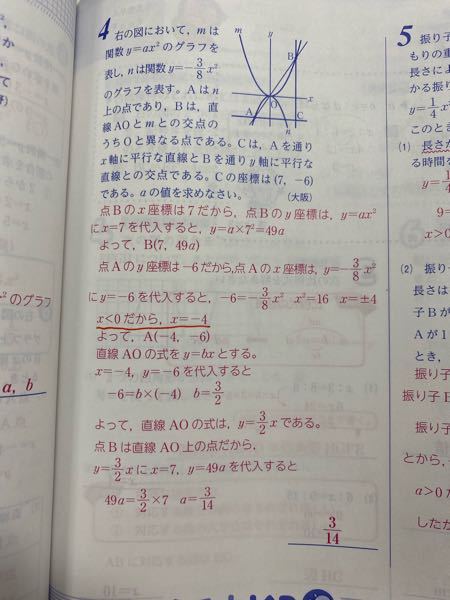 4 右の図において，mは
関数y=ax²のグラフを
表し，nは関数y=-3/8x²
のグラフを表す。Aはn
上の点であり，Bは，直
線AOとmとの交点の
うちOと異なる点である。Cは，Aを通り
x軸に平行な直線とBを通りy軸に平行な
直線との交点である。Cの座標は(7, -6)
である。aの値を求めなさい。 (大阪)
m
y
B
O
x
A
C
n
点Bのx座標は7だから，点Bのy座標は，y=ax²
にx=7を代入すると，y=a×7²=49a
よって，B(7, 49a)
点Aのy座標は-6だから,点Aのx座標は，y=-3/8x²
にy=-6を代入すると，-6=-3/8x² x²=16 x=±4
x<0だから，x=-4
よって，A(-4, -6)
直線AOの式をy=bxとする。
x=-4，y=-6を代入すると
-6=b×(-4) b=3/2
よって，直線AOの式は，y=3/2xである。
点Bは直線AO上の点だから，
y=3/2xにx=7，y=49aを代入すると
49a=3/2×7 a=3/14
3/14
のグラフ
a, b
5 振り子
もりの重
長さによ
かる振り
y=1/4x²
このとき
(1) 長さが
る時間を
9=
x>0
(2) 振り子
長さは
子Bが
Aが1
とき，
振り子
振り子B
振り子
とから，
a>0だ
したが